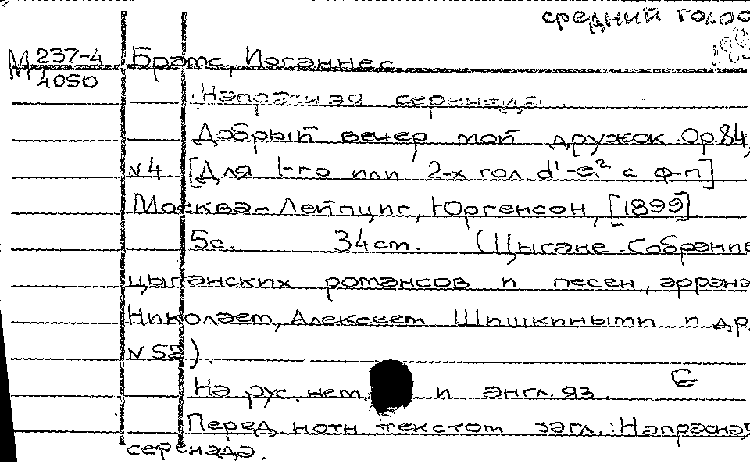 средний голос
М 237-4 Брамс, Иоганнес
4050
Напрасная серенада
Добрый вечер мой дружок Op 84,
№4 [Для 1-го или 2-х гол. d¹-e² с ф-п]
Москва-Лейпциг, Юргенсон, [1899]
5с. 34см. (Цыгане. Собрание
цыганских романсов и песен, аранж
Николаем, Алексеем Шишкиными и др.
№ 52)
На рус. нем. и англ. яз.
Перед нотн текстом загл.: Напрасная
серенада.